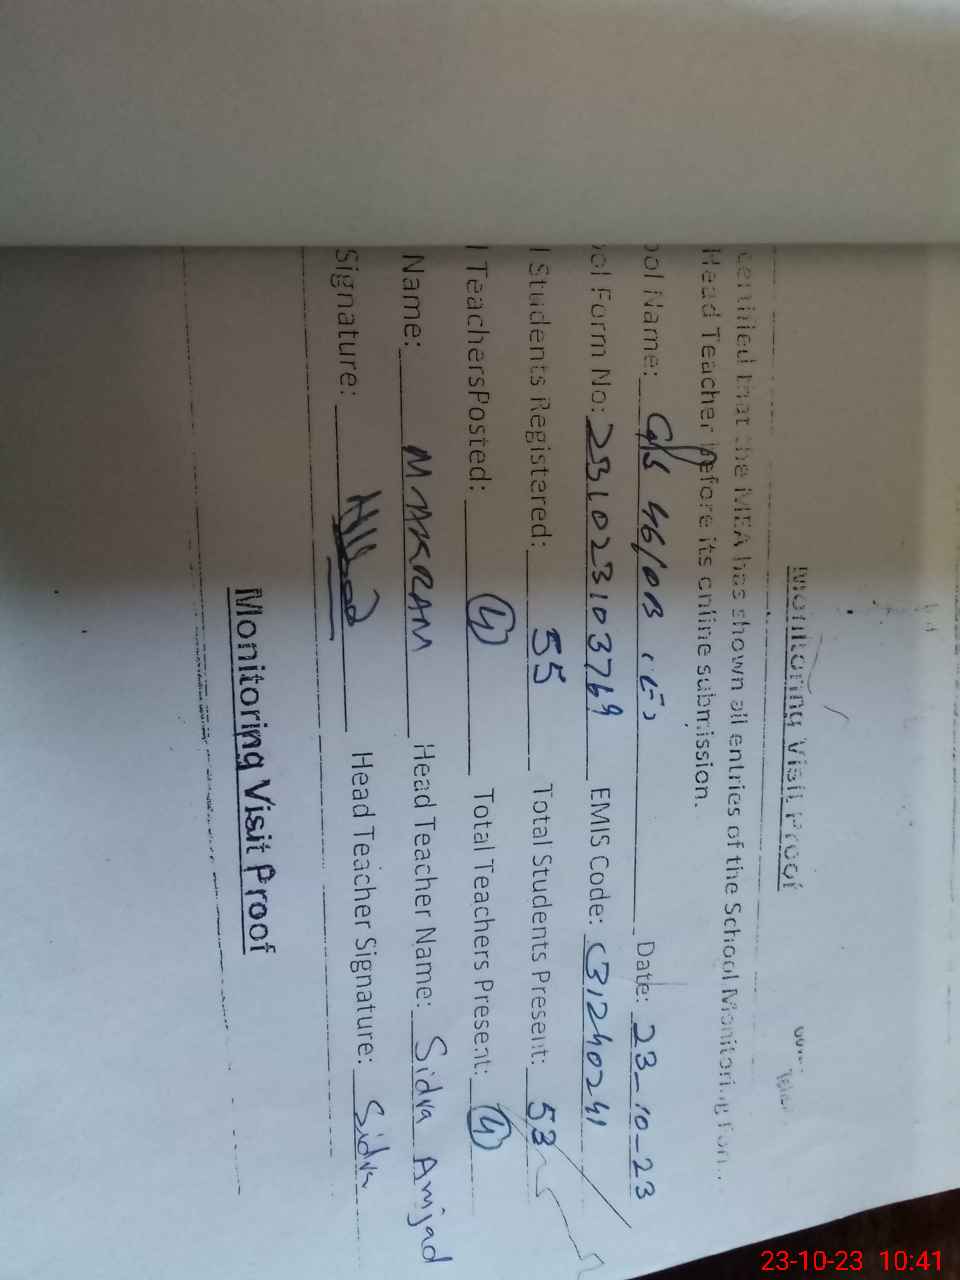 Monitoring Visit Proof
certified that the MEA has shown all entries of the School Monitoring
Head Teacher before its online submission.
ool Name: G/S 46/DB (E) Date: 23-10-23
ool Form No: 231023103769 EMIS Code: 31240241
l Students Registered: 55 Total Students Present: 53
l TeachersPosted: 4 Total Teachers Present: 4
Name: M AKRAM Head Teacher Name: Sidra Amjad
Signature: Head Teacher Signature: Sidra
Monitoring Visit Proof
23-10-23 10:41